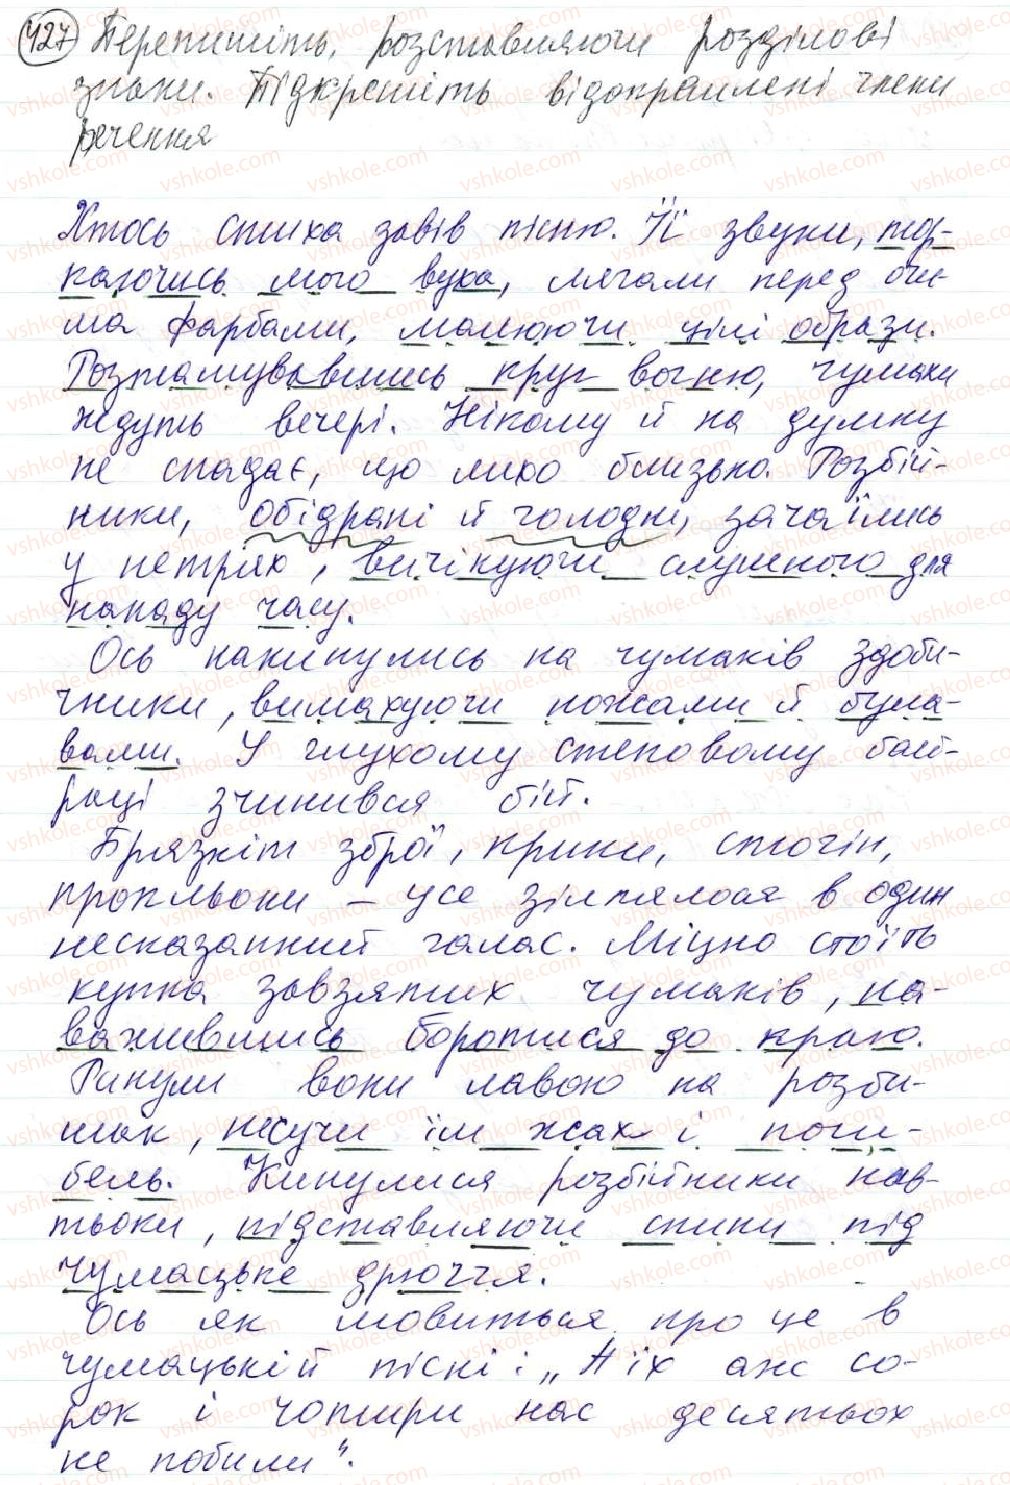 427 Перепишіть, розставляючи розділові
знаки. Підкресліть відокремлені члени
речення
Хтось стиха завів пісню. Її звуки, тор-
каючись мого вуха, лягали перед очи-
ма фарбами, малюючи цілі образи.
Розташувавшись круг вогню, чумаки
ждуть вечері. Нікому й на думку
не спадає, що лихо близько. Розбій-
ники, обідрані й голодні, зачаїлись
у нетрях, вичікуючи слушного для
нападу часу.
Ось накинулись на чумаків здоби-
чники, вимахуючи ножами й була-
вами. У глухому степовому бай-
раці зчинився бій.
Брязкіт зброї, крики, стогін,
прокльони – усе зіллялося в один
несказанний галас. Міцно стоїть
купка завзятих чумаків, на-
важившись боротися до краю.
Ринули вони лавою на розби-
шак, несучи їм жах і поги-
бель. Кинулися розбійники нав-
тьоки, підставляючи спини під
чумацьке дрюччя.
Ось як мовиться про це в
чумацькій пісні: „А їх аж со-
рок і чотири нас десятьох
не побили".